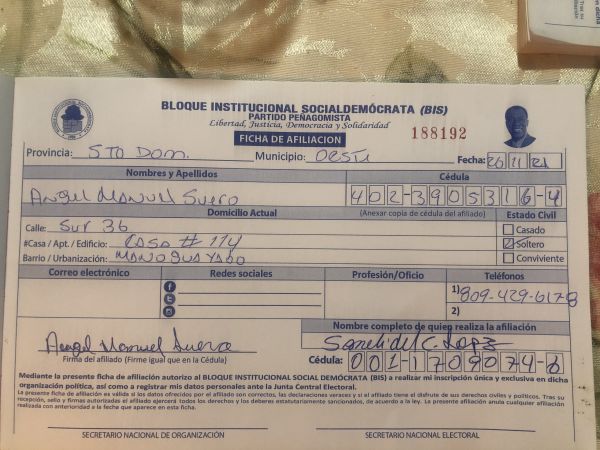 BLOQUE INSTITUCIONAL SOCIALDEMÓCRATA (BIS)
PARTIDO PEÑAGOMISTA
Libertad, Justicia, Democracia y Solidaridad
188192
FICHA DE AFILIACION
Provincia: STO DOM. Municipio: OESTE Fecha: 26 11 21
Nombres y Apellidos Cédula
ANGEL MANUEL SUERO 402-3905316-4
Domicilio Actual (Anexar copia de cédula del afiliado) Estado Civil
Calle: SUR 36 Casado
#Casa / Apt. / Edificio: CASA # 114 Soltero
Barrio / Urbanización: MANOGUAYABO Conviviente
Correo electrónico Redes sociales Profesión/Oficio Teléfonos
1) 809-429-6178
2)
Nombre completo de quien realiza la afiliación
Angel Manuel Suero
Firma del afiliado (Firme igual que en la Cédula) Cédula: 001-1709074-6
Mediante la presente ficha de afiliación autorizo al BLOQUE INSTITUCIONAL SOCIAL DEMÓCRATA (BIS) a realizar mi inscripción única y exclusiva en dicha
organización política, así como a registrar mis datos personales ante la Junta Central Electoral.
La presente ficha de afiliación es válida si los datos ofrecidos por el afiliado son correctos, las declaraciones veraces y si el afiliado tiene el disfrute de sus derechos civiles y políticos. Tras su
recepción, sello y firmas autorizadas el afiliado ejercerá todos los derechos y los deberes estatutariamente sancionados, de acuerdo a la ley. La presente afiliación anula cualquier afiliación
realizada con anterioridad a la fecha que aparece en esta ficha.
SECRETARIO NACIONAL DE ORGANIZACIÓN SECRETARIO NACIONAL ELECTORAL